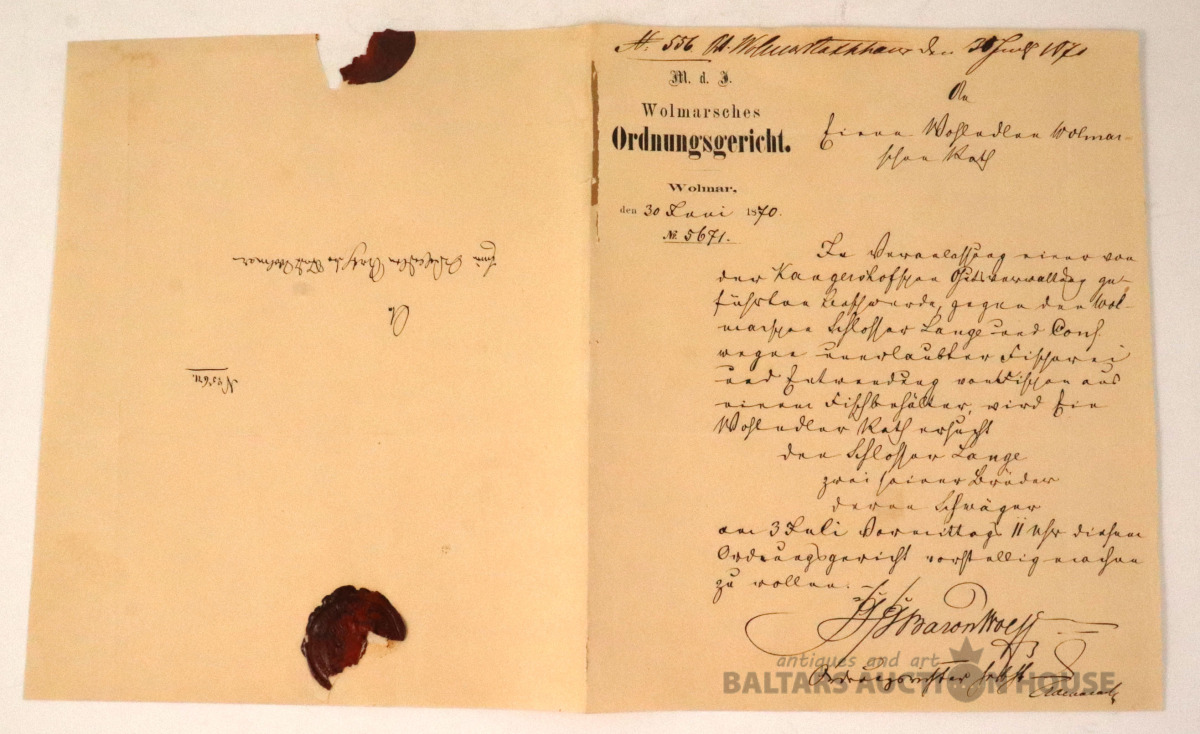 № 556 den 30 Juni 1870
M. d. J.
Wolmarsches
Ordnungsgericht.
Wolmar,
den 30 Juni 1870.
№ 5671.
An
Einen Wohledlen Wolmar-
schen Rath
In Veranlassung einer von
der Kangershofschen Gutsverwaltung ge-
führten Beschwerde, gegen den Wol-
marschen Schlosser Lange und Cons.
wegen unerlaubter Fischerei
und Entwendung von Fischen aus
einem Fischbehälter, wird Ein
Wohledler Rath ersucht
den Schlosser Lange
zwei seiner Brüder
deren Schwäger
am 3 Juli Vormittags 11 Uhr diesem
Ordnungsgericht vorstellig machen
zu wollen.
Baron Wolff
Ordnungsrichter
An
Einen Wohledlen Rath der Stadt Wolmar
№ 5671.
antiques and art
BALTARS AUCTION HOUSE